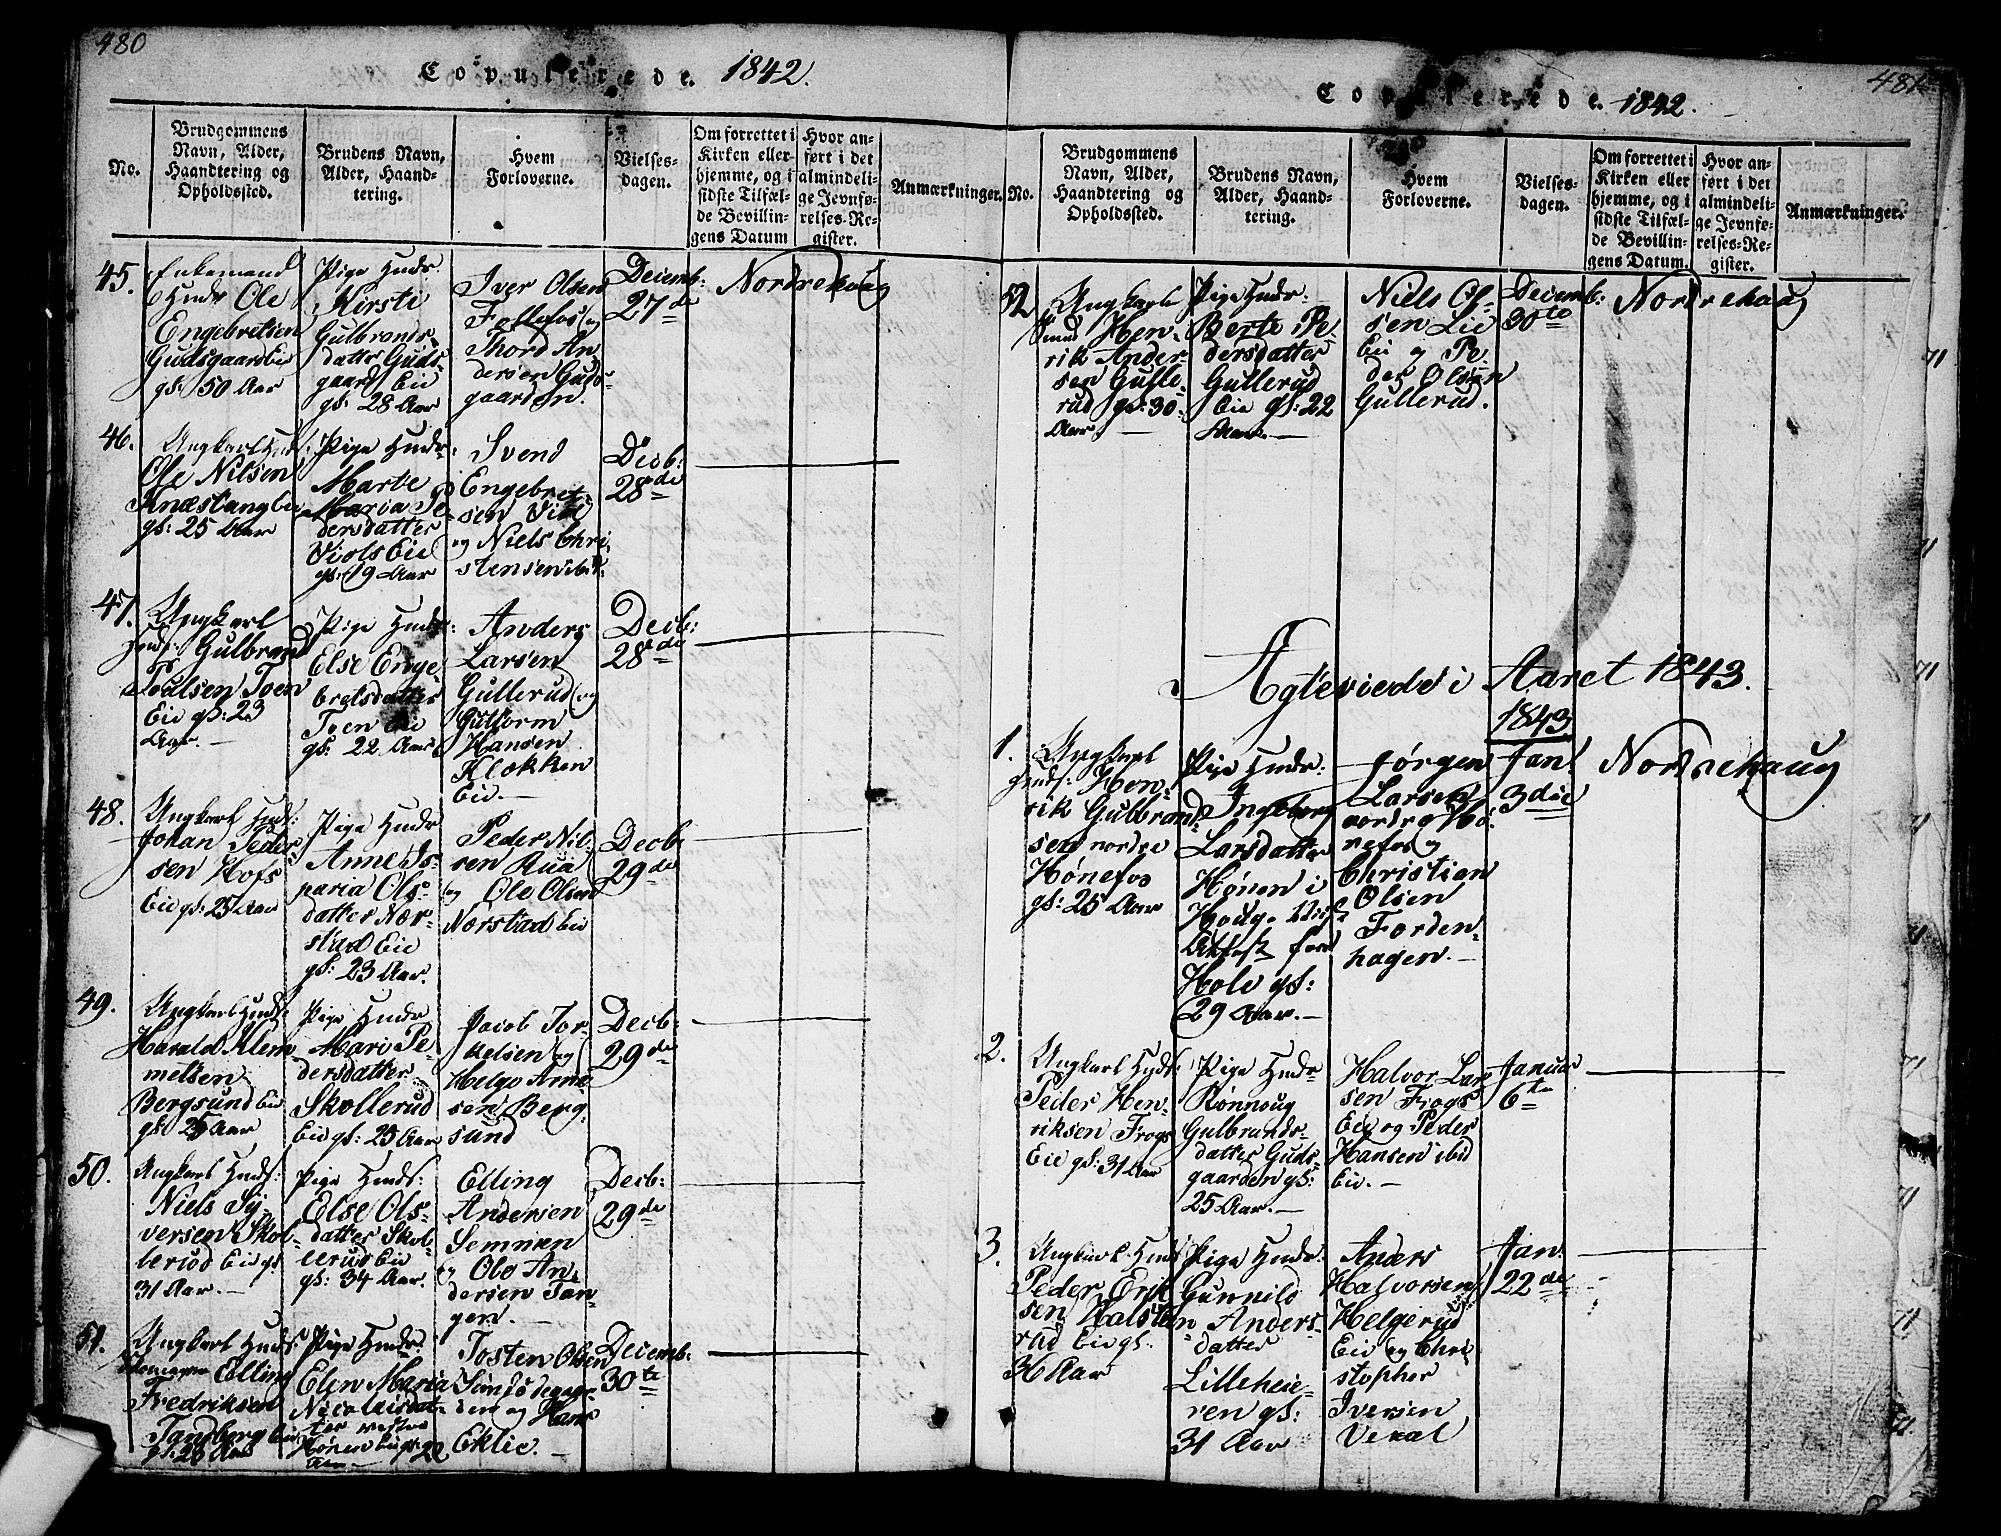 480
Copulerede. 1842.
No.
Brudgommens
Navn, Alder,
Haandtering og
Opholdssted.
Brudens Navn,
Alder, Haand-
tering.
Hvem
Forloverne.
Vielses-
dagen.
Om forrettet i
Kirken eller
hjemme, og i
sidste Tilfæl-
de Bevillin-
gens Datum
Hvor an-
ført i det
almindeli-
ge Jevnfø-
relses-Re-
gister.
Anmærkninger.
45.
Enkemand
Ole
Engebretsen
Gudsgaard Eie
gl: 50 Aar
Pige
Kirsti
Gulbrands-
datter Guds-
gaard Eie
gl: 28 Aar
Iver Olsen
Follefos og
Thord An
dersen Guds-
gaarden.
Decemb:
27de
Nordrehaug
46.
Ungkarl
Ole Nilsen
Knæstang Eie
gl: 25 Aar
Pige
Marte
Maria Pe
dersdatter
Viols Eie
gl: 19 Aar
Svend
Engebret-
sen Viol
og Niels Chri-
stensen ibd
Decb:
28de
47.
Ungkarl
Gulbrand
Poulsen Toen
Eie gl: 23
Aar.
Pige
Else Enge
bretsdatter
Toen Eie
gl: 22 Aar
Anders
Larsen
Gullerud og
Guttorm
Hansen
Klokken
Eie.
Decb:
28de
48.
Ungkarl
Johan Peder
sen Hofs
Eie gl: 25 Aar
Pige
Anne Is-
paria Ols-
datter Nær-
stad Eie
gl: 23 Aar.
Peder Nil-
sen Rua
og Ole Olsen
Nærstad Eie
Decb:
29de
49.
Ungkarl
Harald Klem
metsen
Bergsund Eie
gl: 25 Aar
Pige
Mari Pe-
dersdatter
Skollerud
Eie gl: 25 Aar
Jacob Tor-
kelsen og
Helge Arne
sen Berg-
sund
Decb:
29de
50.
Ungkarl
Niels Sy-
versen Skol-
lerud Eie gl:
31 Aar.
Pige
Else Ols-
datter Skol-
lerud Eie
gl: 34 Aar.
Elling
Andersen
Semmen
og Ole An-
dersen Tan-
gen.
Decb:
29de
51.
Ungkarl
Elling
Fredriksen
Tandberg Eie
gl: 28 Aar
Pige
Elen Maria
Nicolaisdat-
ter
22
Aar.
Tosten Olsen
og Hans
Eklie.
Decemb:
30te
481
Copulerede. 1842.
No.
Brudgommens
Navn, Alder,
Haandtering og
Opholdssted.
Brudens Navn,
Alder, Haand-
tering.
Hvem
Forloverne.
Vielses-
dagen.
Om forrettet i
Kirken eller
hjemme, og i
sidste Tilfæl-
de Bevillin-
gens Datum.
Hvor an-
ført i det
almindeli-
ge Jevnfø-
relses-Re-
gister.
Anmærkninger.
52.
Ungkarl
Hen-
rik Ander-
sen Gulle-
rud gl: 30
Aar.
Pige
Berte Pe-
dersdatter
Gullerud
Eie gl: 22
Aar.
Niels Ol-
sen Lie
Eie og Pe-
der Olsen
Gullerud.
Decemb:
30te
Nordrehaug
Ægteviede i Aaret 1843.
1843
1.
Ungkarl
Hen-
rik Gulbrand-
sen nordre
Hønefos
gl: 25 Aar
Pige
Ingeborg
Larsdatter
Hønen i
fra
Hole gl:
29 Aar.
Jørgen
Larsen
nordre Hø-
nefos og
Christian
Olsen
Forden-
hagen.
Jan:
3die
Nordrehaug
2.
Ungkarl
Peder Hen-
riksen Frogs
Eie gl: 31 Aar
Pige
Rønnoug
Gulbrands-
datter Guds-
gaarden gl:
25 Aar.
Halvor Lar
sen Frogs
Eie og Peder
Hansen ibd
Eie.
Januar
6te
3.
Ungkarl
Peder Erik
sen Halsten
rud Eie gl:
36 Aar
Pige
Gunnild
Anders-
datter
Lilleheie-
ren gl:
31 Aar
Anders
Halvorsen
Helgerud
Eie og Chri
stopher
Iversen
Vexal
Jan.
22de